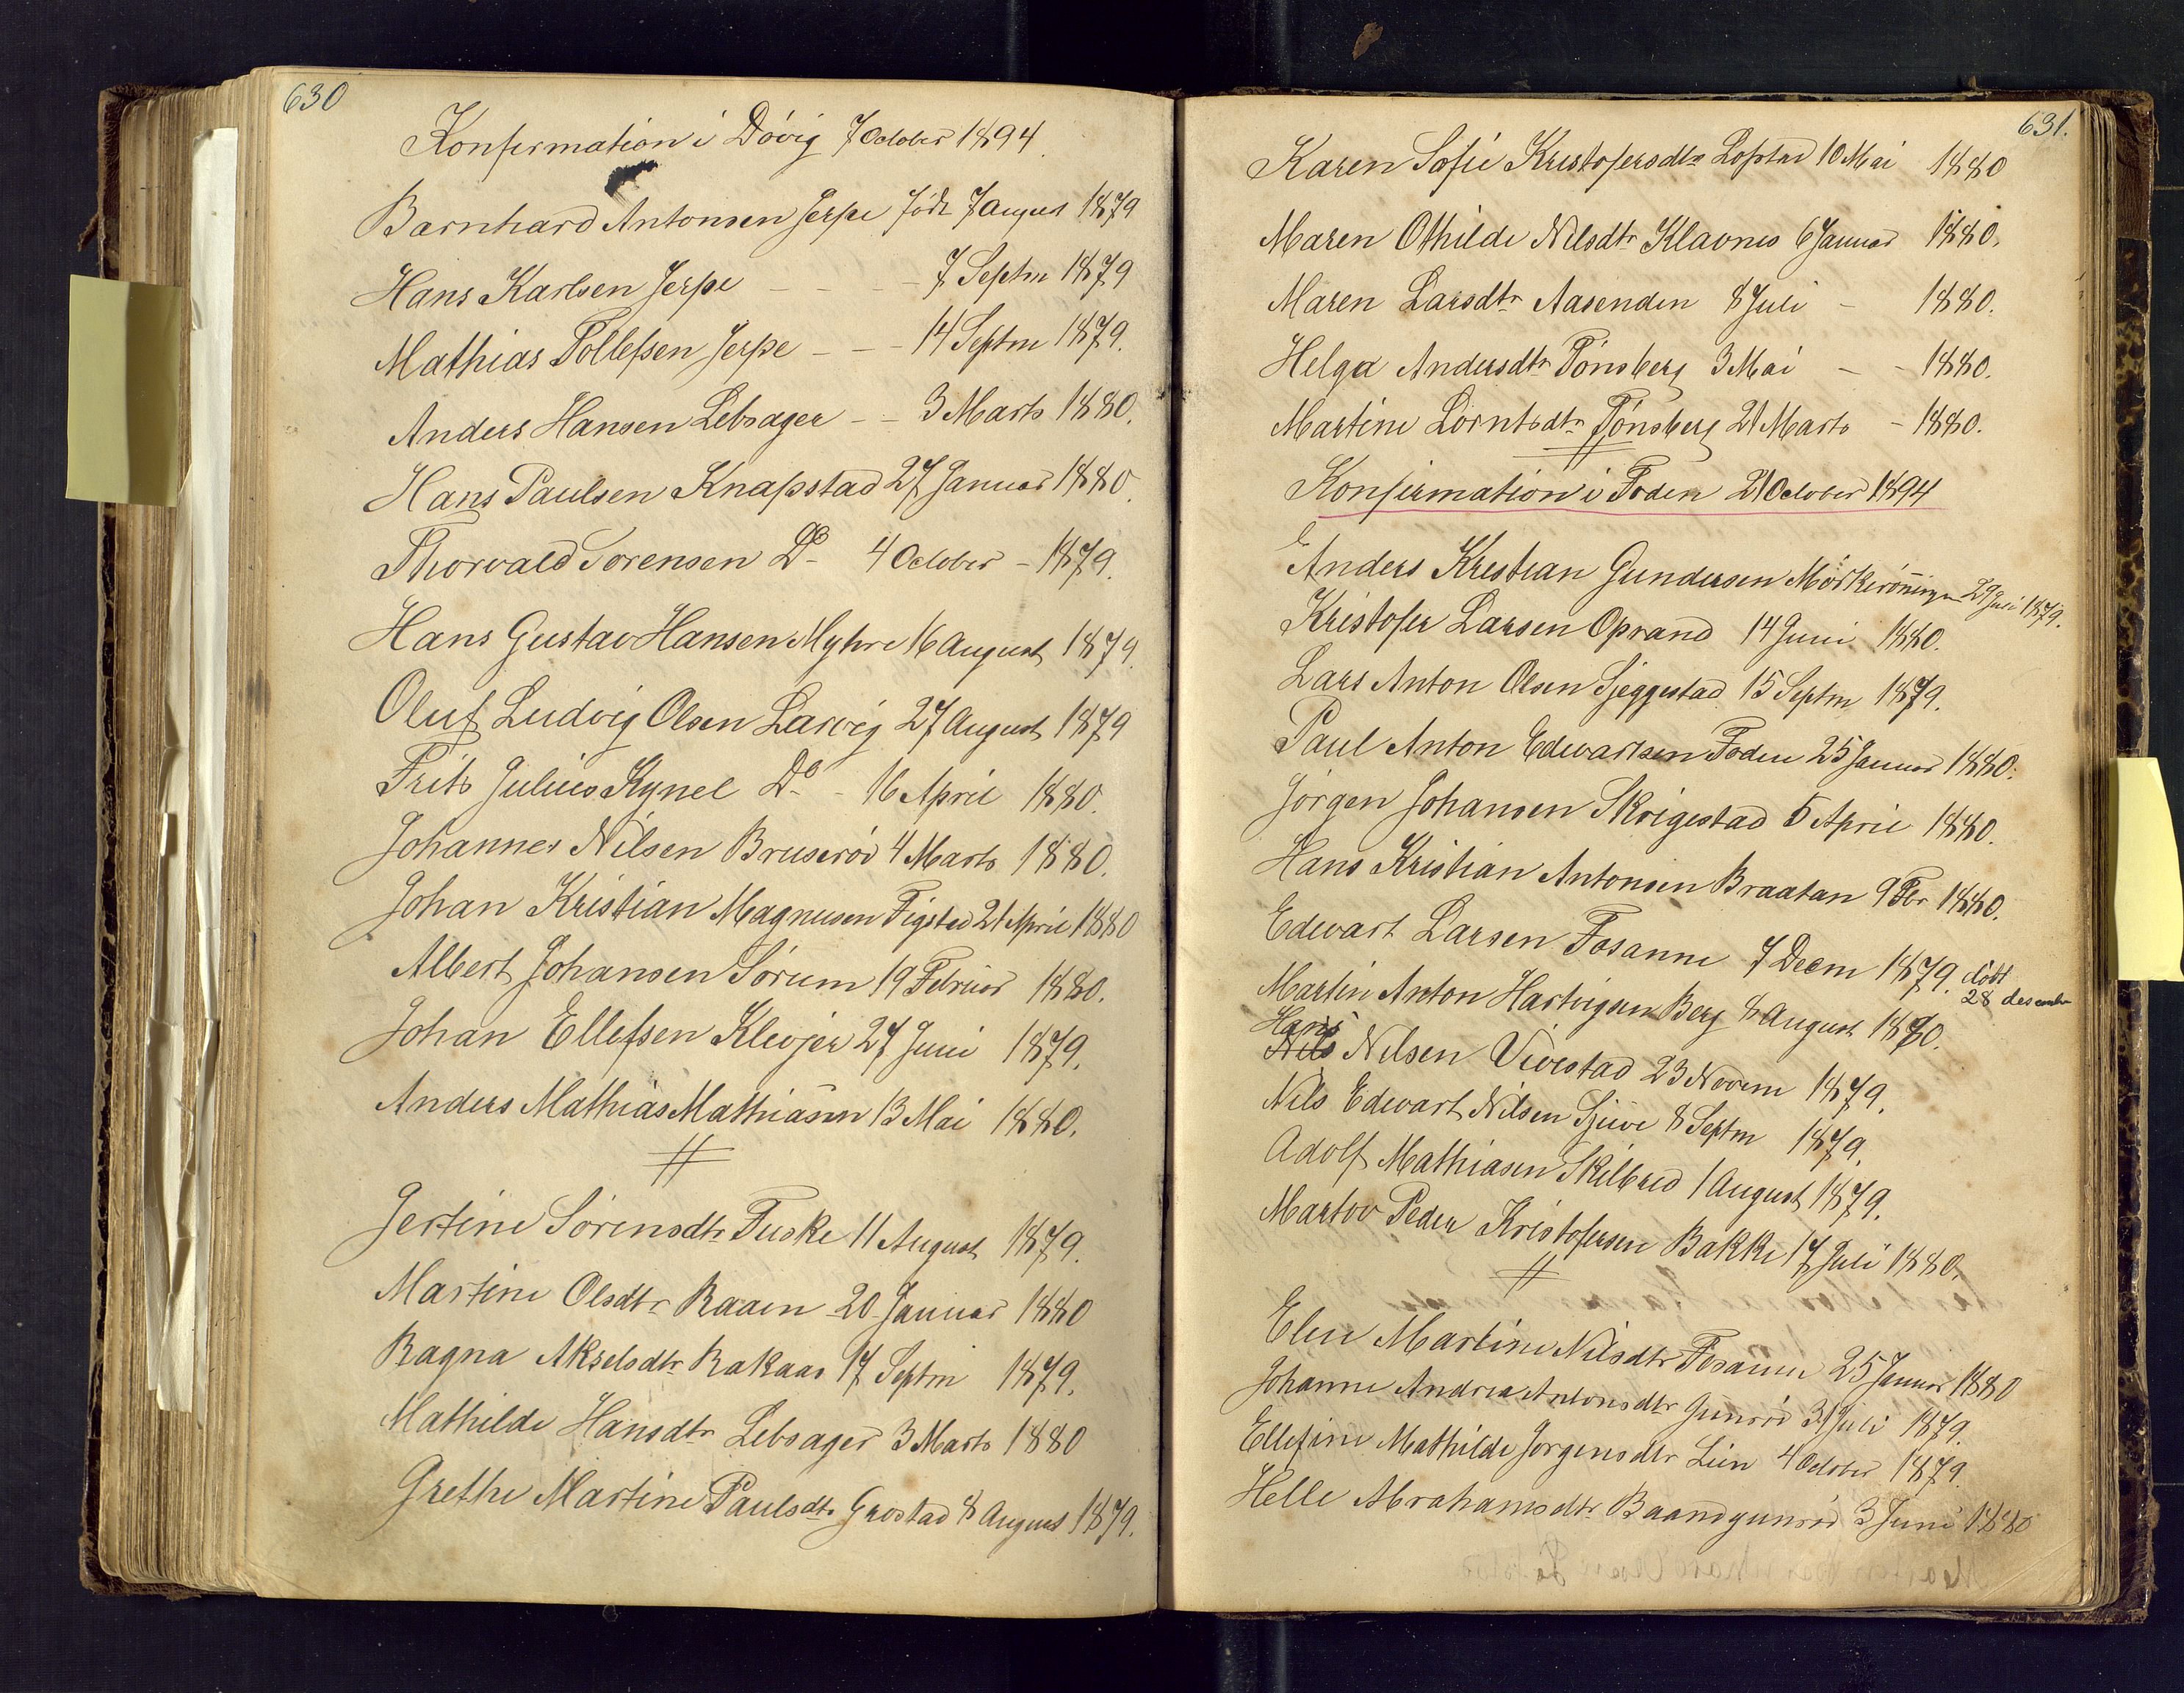 630
Konfirmation i Døvig 7 October 1894.
Barnhard Antonsen Jerpe født 7 August 1879
Hans Karlsen Jerpe - - - - 7 Septm 1879
Mathias Tollefsen Jerpe - - - 14 Septm 1879.
Anders Hansen Lebsager - - 3 Marts 1880.
Hans Paulsen Knapstad 27 Januar 1880.
Thorvald Sorensen Do 4 October - 1879.
Hans Gustav Hansen Myhre 16 August 1879.
Oluf Ludvig Olsen Larvig 27 August 1879
Frits Julius Kynel Do - 16 April 1880.
Johannes Nilsen Bruserød 4 Marts 1880.
Johan Kristian Magnusen Figstad 21 April 1880
Albert Johansen Sørum 19 Februar 1880.
Johan Ellefsen Klevjer 27 Juni 1879.
Anders Mathias Mathiasen 13 Mai 1880.
Jertine Sørensdtr Fuske 11 August 1879.
Martine Olsdtr Raaen 20 Januar 1880
Ragna Akselsdtr Rakaas 17 Septm 1879.
Mathilde Hansdtr Lebsager 3 Marts 1880
Grethe Martine Paulsdtr Grostad 8 August 1879.
631.
Karen Sofie Kristofersdtr Lofstad 10 Mai 1880
Maren Othilde Nilsdtr Klavnes 6 Januar 1880.
Maren Larsdtr Aasenden 8 Juli - 1880.
Helga Andersdtr Tønsberg 3 Mai - - 1880.
Martine Lorntsdtr Tønsberg 21 Marts - 1880.
Konfirmation i Foden 21 October 1894
Anders Kristian Gundersen Mørkerønningen 29 Juli 1879.
Kristofer Larsen Oprand 14 Juni 1880.
Lars Anton Olsen Sjeggestad 15 Septm 1879.
Paul Anton Edwartsen Foden 25 Januar 1880.
Jørgen Johansen Skrigestad 5 April 1880.
Hans Kristian Antonsen Braatan 9 Febr 1880.
Edwart Larsen Fosanne 7 Decm 1879. døbt
28 desember
Martin Anton Hartvigsen Berg 8 August 1880.
Hans
Nils Nilsen Vivestad 23 Novem 1879.
Nils Edwart Nilsen Sjuve 8 Septm 1879.
Adolf Mathiasen Skilbred 1 August 1879.
Martov Peder Kristofersen Bakke 17 Juli 1880.
Elen Martine Nilsdtr Fosanne 25 Januar 1880
Johanne Andrea Antonsdtr Gunrød 31 Juli 1879.
Ellefine Mathilde Jorgensdtr Lien 4 October 1879.
Helle Abrahamsdtr Baandgunrød 3 Juni 1880